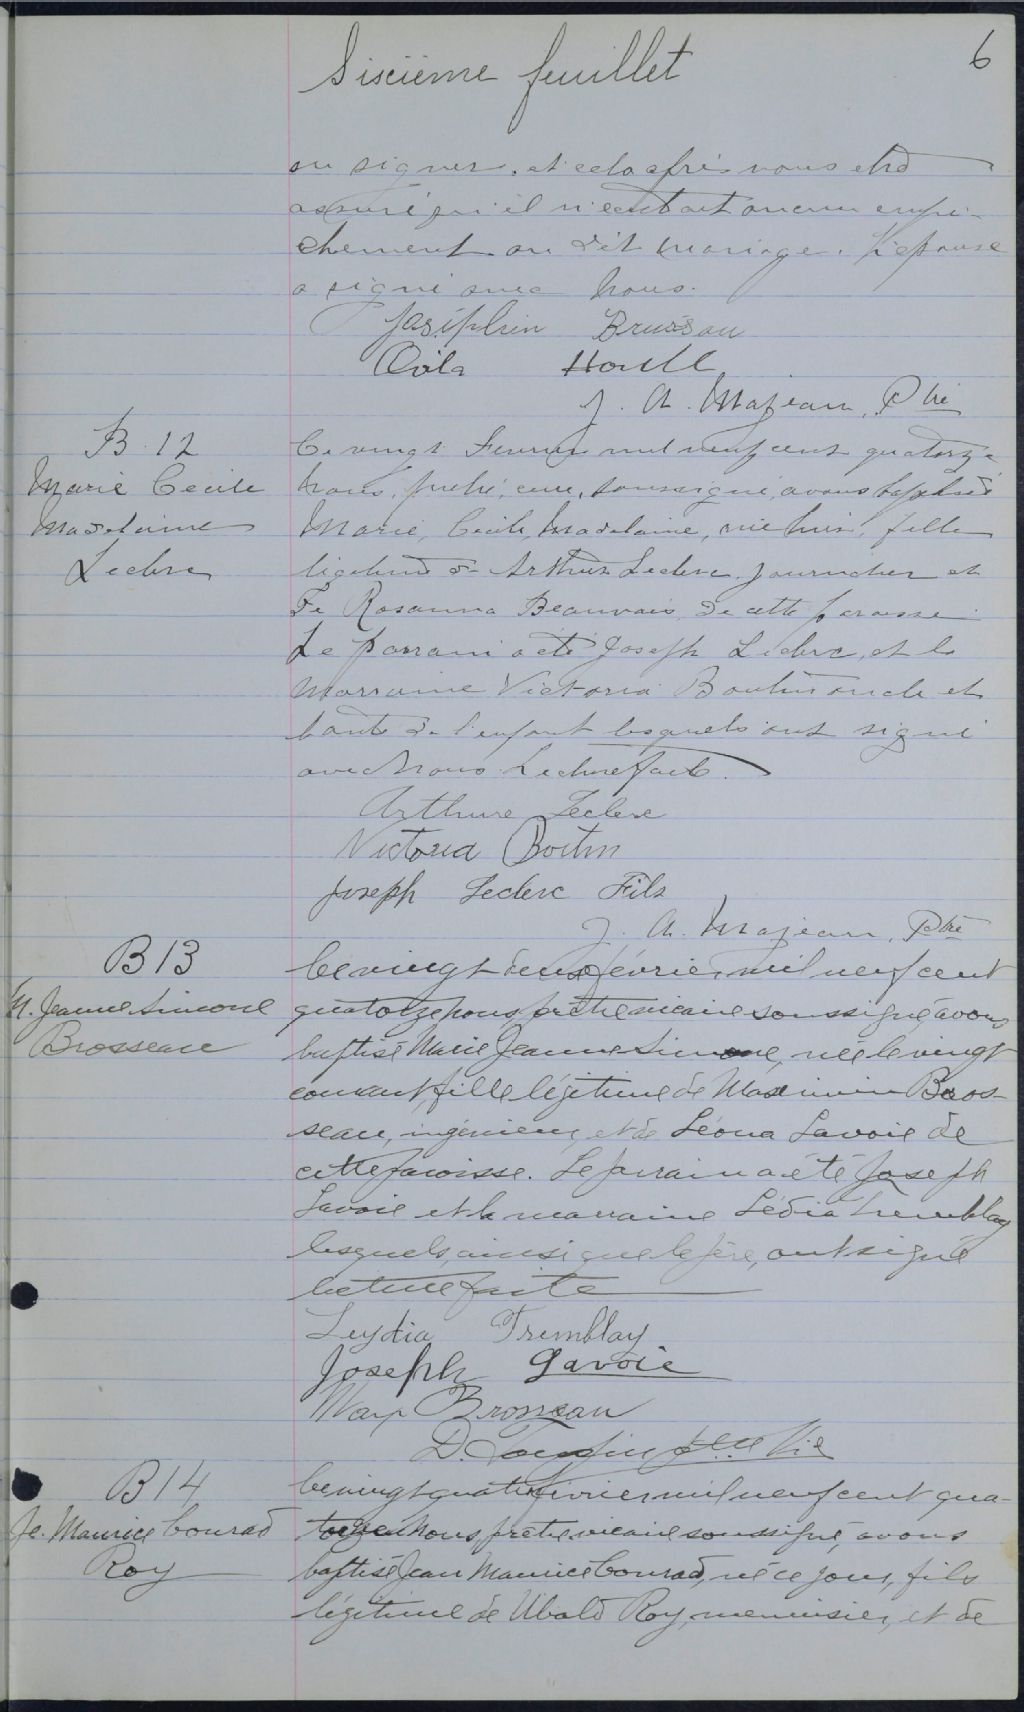 6
Sixième feuillet
ou signer, et cela après nous être
assuré qu'il n'existait aucun empê-
chement au dit mariage. L'épouse
a signé avec nous.
Joséphin Brusseau
Ovila Houll
J. A. Majeau, Ptre
B. 12
Marie Cecile
Madelaine
Leclerc
Ce vingt Fevrier mil neuf cent quatorze
nous, prêtre, curé, soussigné, avons baptisé
Marie, Cecile, Madelaine, née hier, fille
légitime de Arthur Leclerc, journalier et
de Rosanna Beauvais, de cette paroisse.
Le parrain a été Joseph Leclerc, et la
marraine Victoria Boutin oncle et
tante de l'enfant lesquels ont signé
avec nous. Lecture faite.
Arthure Leclerc
Victoria Boitin
Joseph Leclerc Fils
J. A. Majeau, Ptre
B 13
M. Jeanne Simone
Brosseau
Ce vingt deux février, mil neuf cent
quatorze nous, prêtre vicaire soussigné avons
baptisé Marie Jeanne Simone, née le vingt
courant, fille légitime de Maximin Bros-
seau, ingénieur, et de Léona Lavoie de
cette paroisse. Le parrain a été Joseph
Lavoie et la marraine Lédia Tremblay
lesquels, ainsi que le père, ont signé
lecture faite
Leydia Tremblay
Joseph Lavoie
Max Brosseau
B 14
Je. Maurice Conrad
Roy
Ce vingt quatre février mil neuf cent qua-
torze nous, prêtre vicaire soussigné, avons
baptisé Jean Maurice Conrad, né ce jour, fils
légitime de Ubald Roy, menuisier, et de